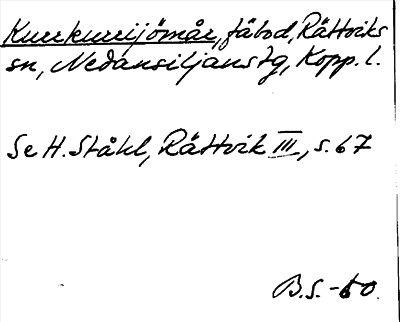 Kurrkurrijömår, fäbod, Rättviks
sn, Nedansiljans tg, Kopp. l.
Se H. Ståhl, Rättvik III, s. 67
B.S. -60.